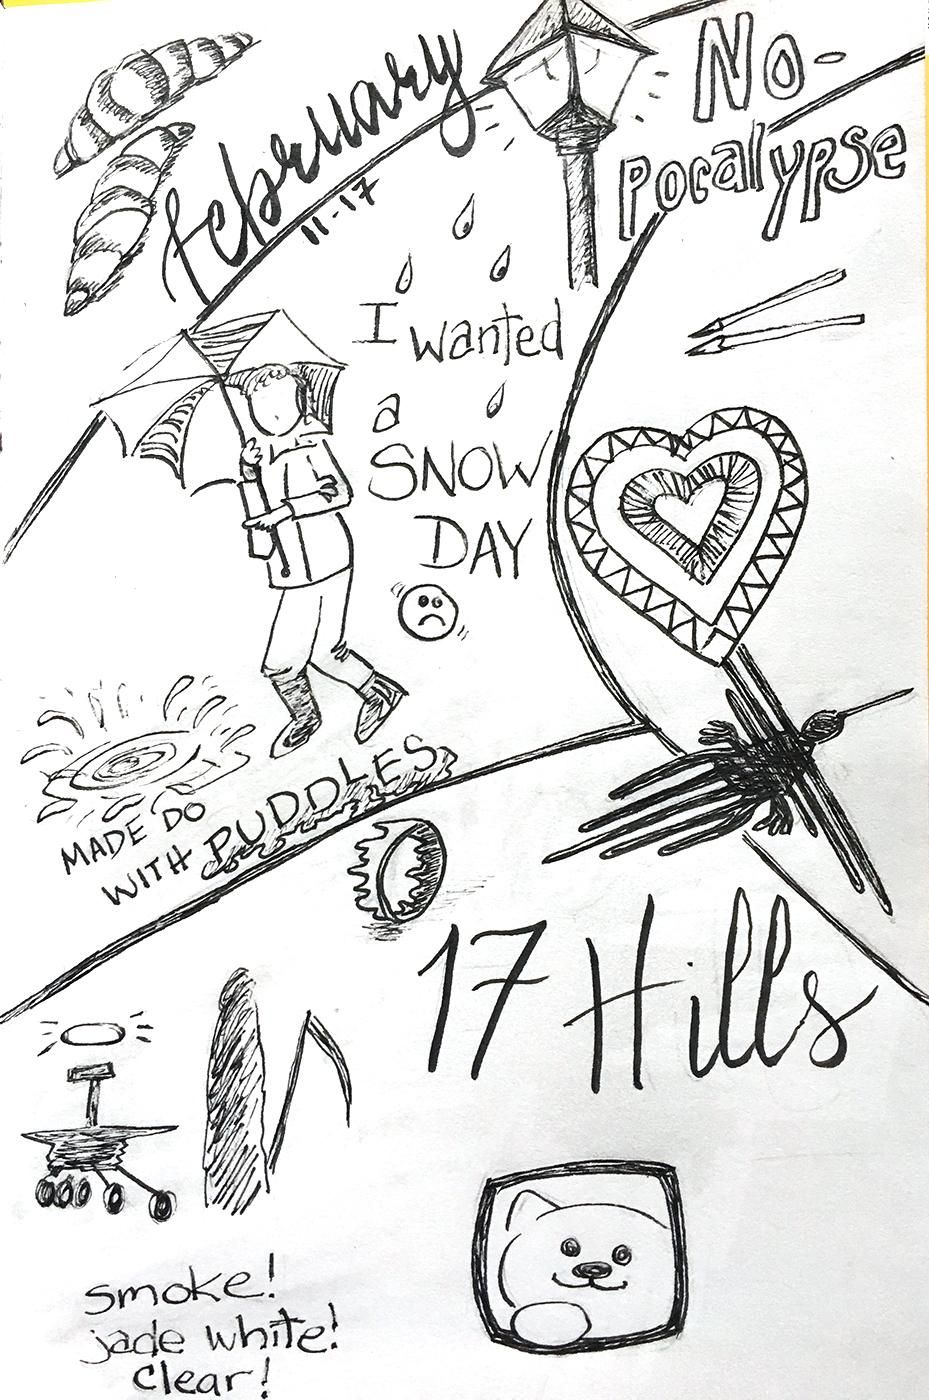 February
11-17
No-
pocalypse
I wanted
a
SNOW
DAY
MADE DO
WITH PUDDLES
17 Hills
smoke!
jade white!
clear!